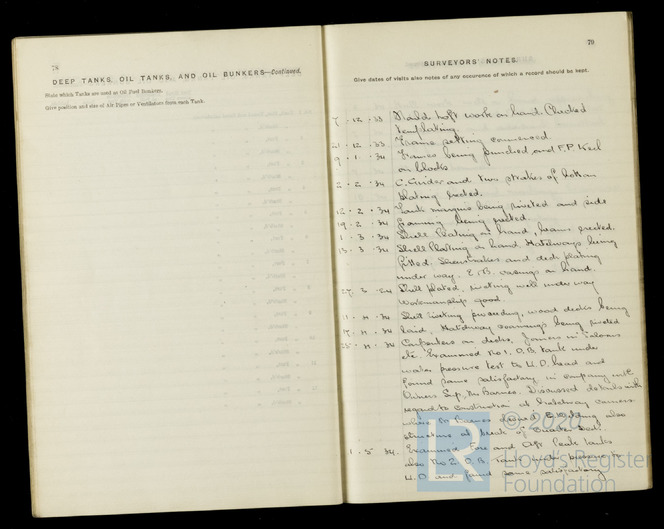 78
DEEP TANKS, OIL TANKS, AND OIL BUNKERS—Continued.
State which Tanks are used as Oil Fuel Bunkers.
Give position and size of Air Pipes or Ventilators from each Tank.
79
SURVEYORS' NOTES.
Give dates of visits also notes of any occurence of which a record should be kept.
7 . 12 . 33 Mould Loft work on hand. Checked
templating.
21 . 12 . 33 Frame setting commenced
9 . 1 . 34 Frames being punched and F.P. Keel
on blocks
2 . 2 . 34 C. Girder and two strakes of bottom
plating erected.
12 . 2 . 34 Tank margins being riveted and side
19 . 2 . 34 framing being erected.
1 . 3 . 34 Shell Plating on hand, beams erected.
13 . 3 . 34 Shell Plating on hand. Hatchways being
fitted. Stringers and deck plating
under way. E. B. casings on hand.
27 . 3 . 34 Shell plated, riveting well under way
Workmanship good.
11 . 4 . 34 Shell riveting proceeding, wood decks being
17 . 4 . 34 laid, Hatchway coamings being riveted
25 . 4 . 34 Carpenters on decks, Joiners in
etc. Examined No 1. D.B. tank under
water pressure test to W.D. head and
found same satisfactory in company with
Owners Sup. Mr Barnes. Discussed details with
regard to construction at hatchway corners
where Mr Barnes desired E. Welding also
structure at break of Quarter Deck.
1 . 5 . 34. Examined Fore and Aft peak tanks
also No 2. D.B. tank under pressure to
W.D and found same satisfactory
© 2020
LR
Lloyd's Register
Foundation